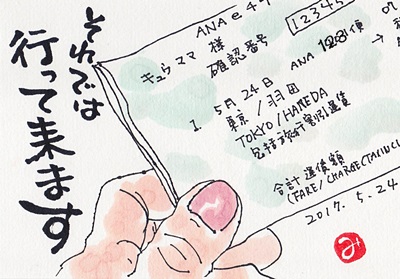 それでは
行って来ます
ANA e
12345
キュウママ 様
確認番号
ANA 便
1. 5月24日
東京/羽田
TOKYO/HANEDA
包括旅行割引運賃
合計運賃額
(FARE/CHARGE
2017.5.24